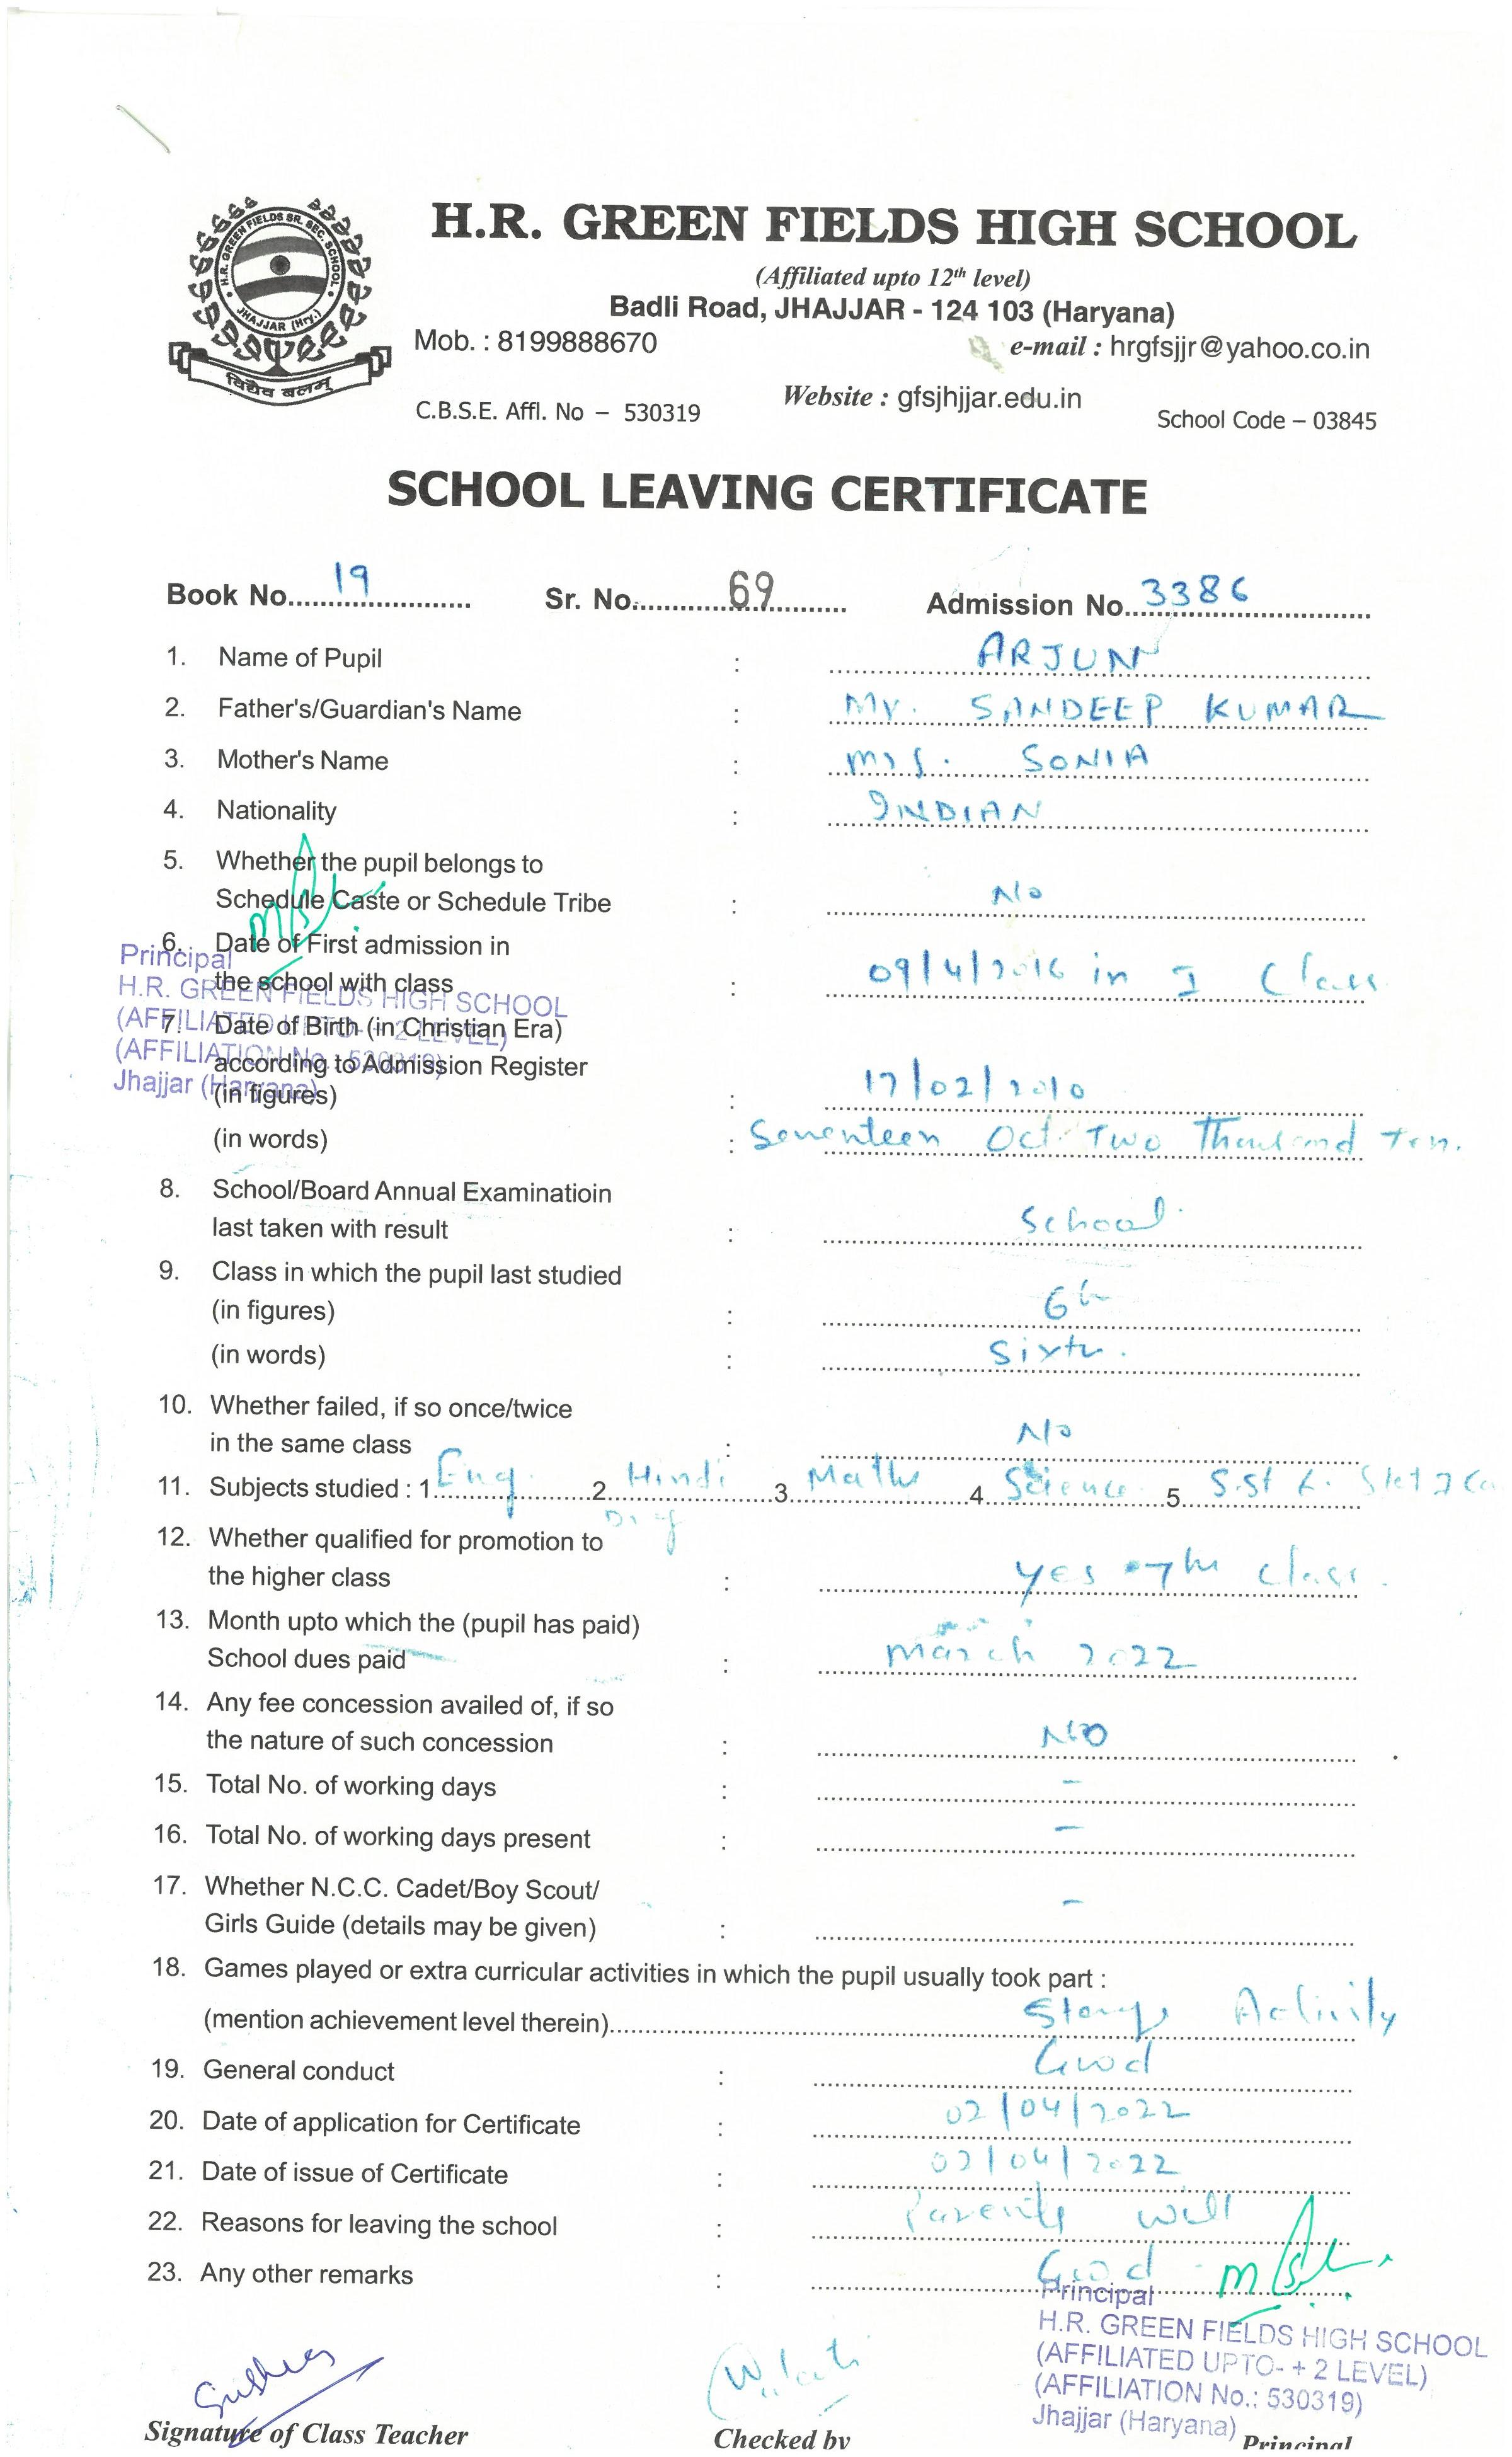 H.R. GREEN FIELDS SR. SEC. SCHOOL
JHAJJAR (Hry.)
विद्यैव बलम्
H.R. GREEN FIELDS HIGH SCHOOL
(Affiliated upto 12th level)
Badli Road, JHAJJAR - 124 103 (Haryana)
Mob. : 8199888670 e-mail : hrgfsjjr@yahoo.co.in
C.B.S.E. Affl. No – 530319 Website : gfsjhjjar.edu.in School Code – 03845
SCHOOL LEAVING CERTIFICATE
Book No. 19 Sr. No. 69 Admission No. 3386
1. Name of Pupil : ARJUN
2. Father's/Guardian's Name : Mr. SANDEEP KUMAR
3. Mother's Name : Mrs. SONIA
4. Nationality : INDIAN
5. Whether the pupil belongs to
Schedule Caste or Schedule Tribe : No
6. Date of First admission in
the school with class : 09/4/2016 in I Class
7. Date of Birth (in Christian Era)
according to Admission Register
(in figures) : 17/02/2010
(in words) : Seventeen Oct Two Thousand Ten.
Principal
H.R. GREEN FIELDS HIGH SCHOOL
(AFFILIATED UPTO- + 2 LEVEL)
(AFFILIATION No.: 530319)
Jhajjar (Haryana)
8. School/Board Annual Examinatioin
last taken with result : School
9. Class in which the pupil last studied
(in figures) : 6th
(in words) : Sixth.
10. Whether failed, if so once/twice
in the same class : No
11. Subjects studied : 1. Eng. 2. Hindi 3. Maths 4. Science 5. S.st
12. Whether qualified for promotion to
the higher class : Yes 7th class.
13. Month upto which the (pupil has paid)
School dues paid : March 2022
14. Any fee concession availed of, if so
the nature of such concession : NO
15. Total No. of working days : –
16. Total No. of working days present : –
17. Whether N.C.C. Cadet/Boy Scout/
Girls Guide (details may be given) : –
18. Games played or extra curricular activities in which the pupil usually took part :
(mention achievement level therein) Activity
19. General conduct : Good
20. Date of application for Certificate : 02/04/2022
21. Date of issue of Certificate : 02/04/2022
22. Reasons for leaving the school : Parents will
23. Any other remarks : Good
Principal
H.R. GREEN FIELDS HIGH SCHOOL
(AFFILIATED UPTO- + 2 LEVEL)
(AFFILIATION No.: 530319)
Jhajjar (Haryana)
Signature of Class Teacher Checked by Principal